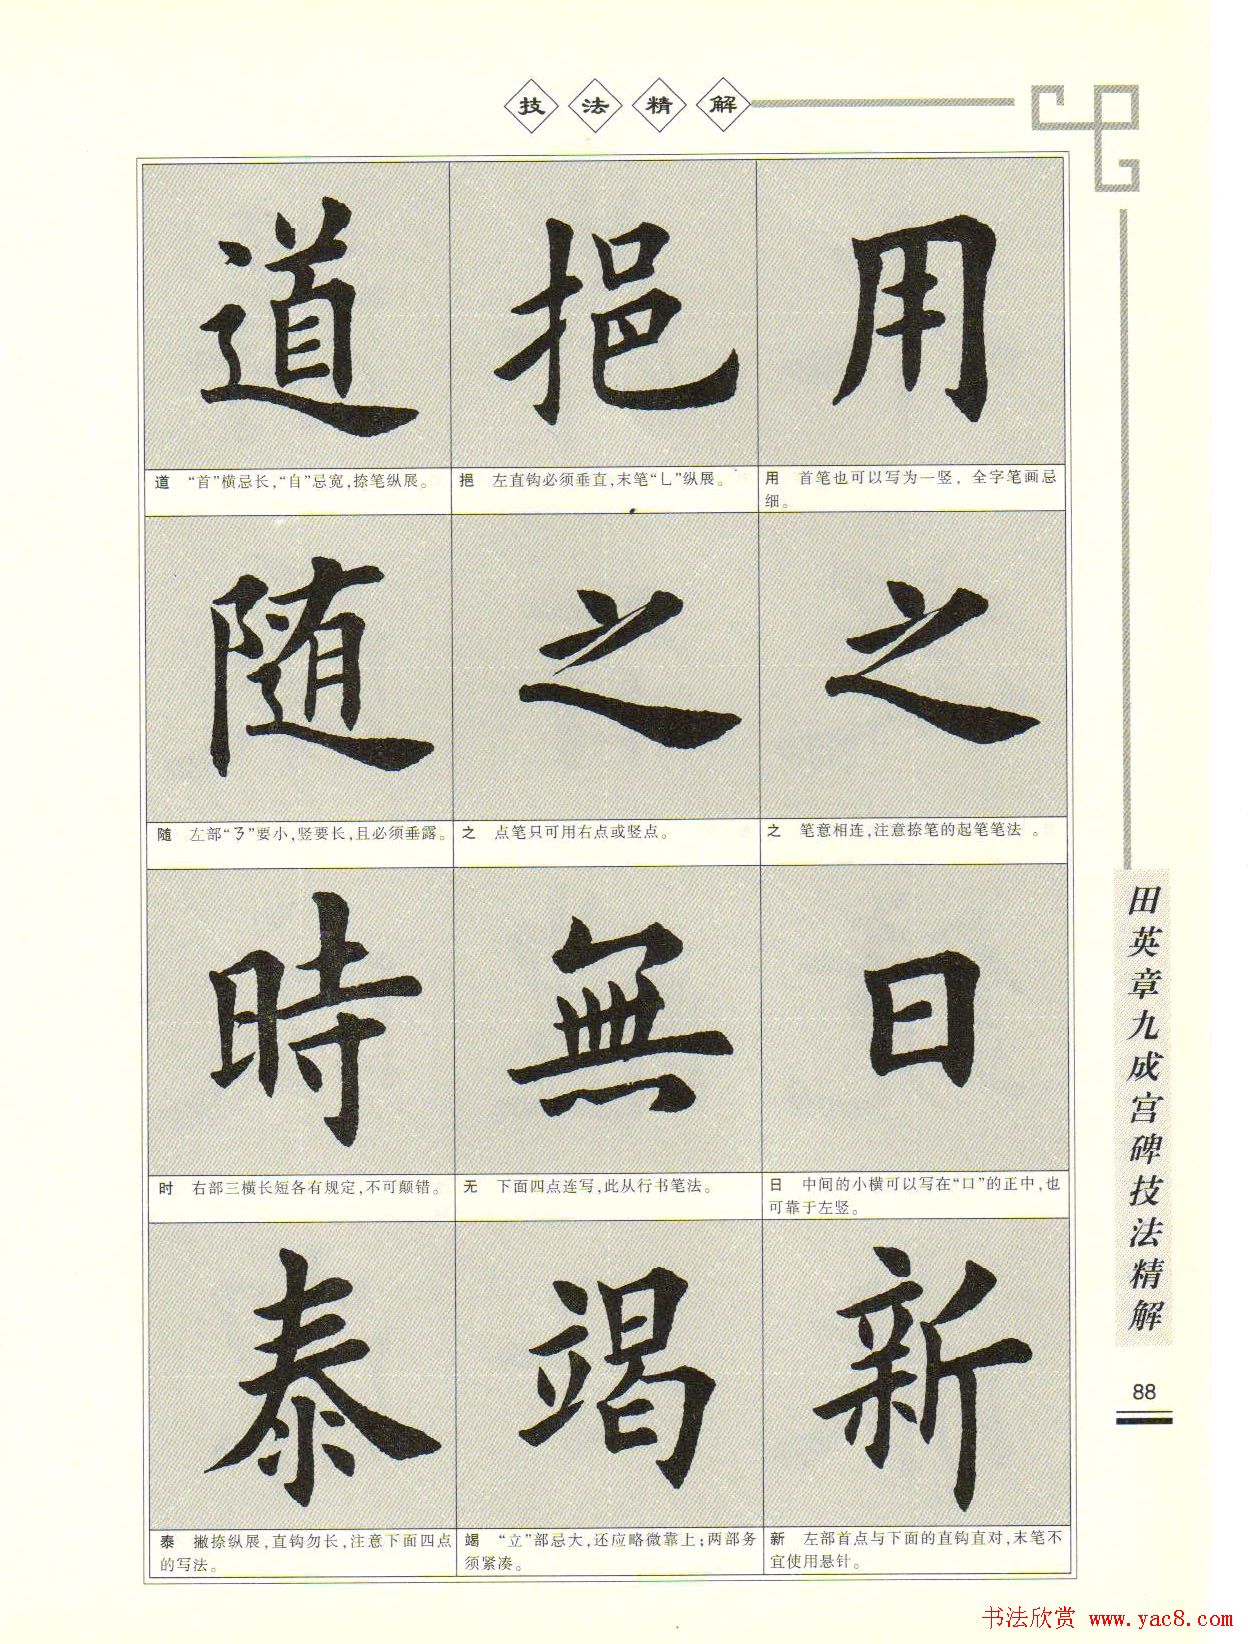 技法精解
道 挹 用
道 “首”横忌长，“自”忌宽，捺笔纵展。
挹 左直钩必须垂直，末笔“乚”纵展。
用 首笔也可以写为一竖，全字笔画忌
细。
随 之 之
随 左部“阝”要小，竖要长，且必须垂露。
之 点笔只可用右点或竖点。
之 笔意相连，注意捺笔的起笔笔法。
時 無 日
时 右部三横长短各有规定，不可颠错。
无 下面四点连写，此从行书笔法。
日 中间的小横可以写在“口”的正中，也
可靠于左竖。
泰 竭 新
泰 撇捺纵展，直钩勿长，注意下面四点
的写法。
竭 “立”部忌大，还应略微靠上；两部务
须紧凑。
新 左部首点与下面的直钩直对，末笔不
宜使用悬针。
田英章九成宫碑技法精解
88
书法欣赏 www.yac8.com